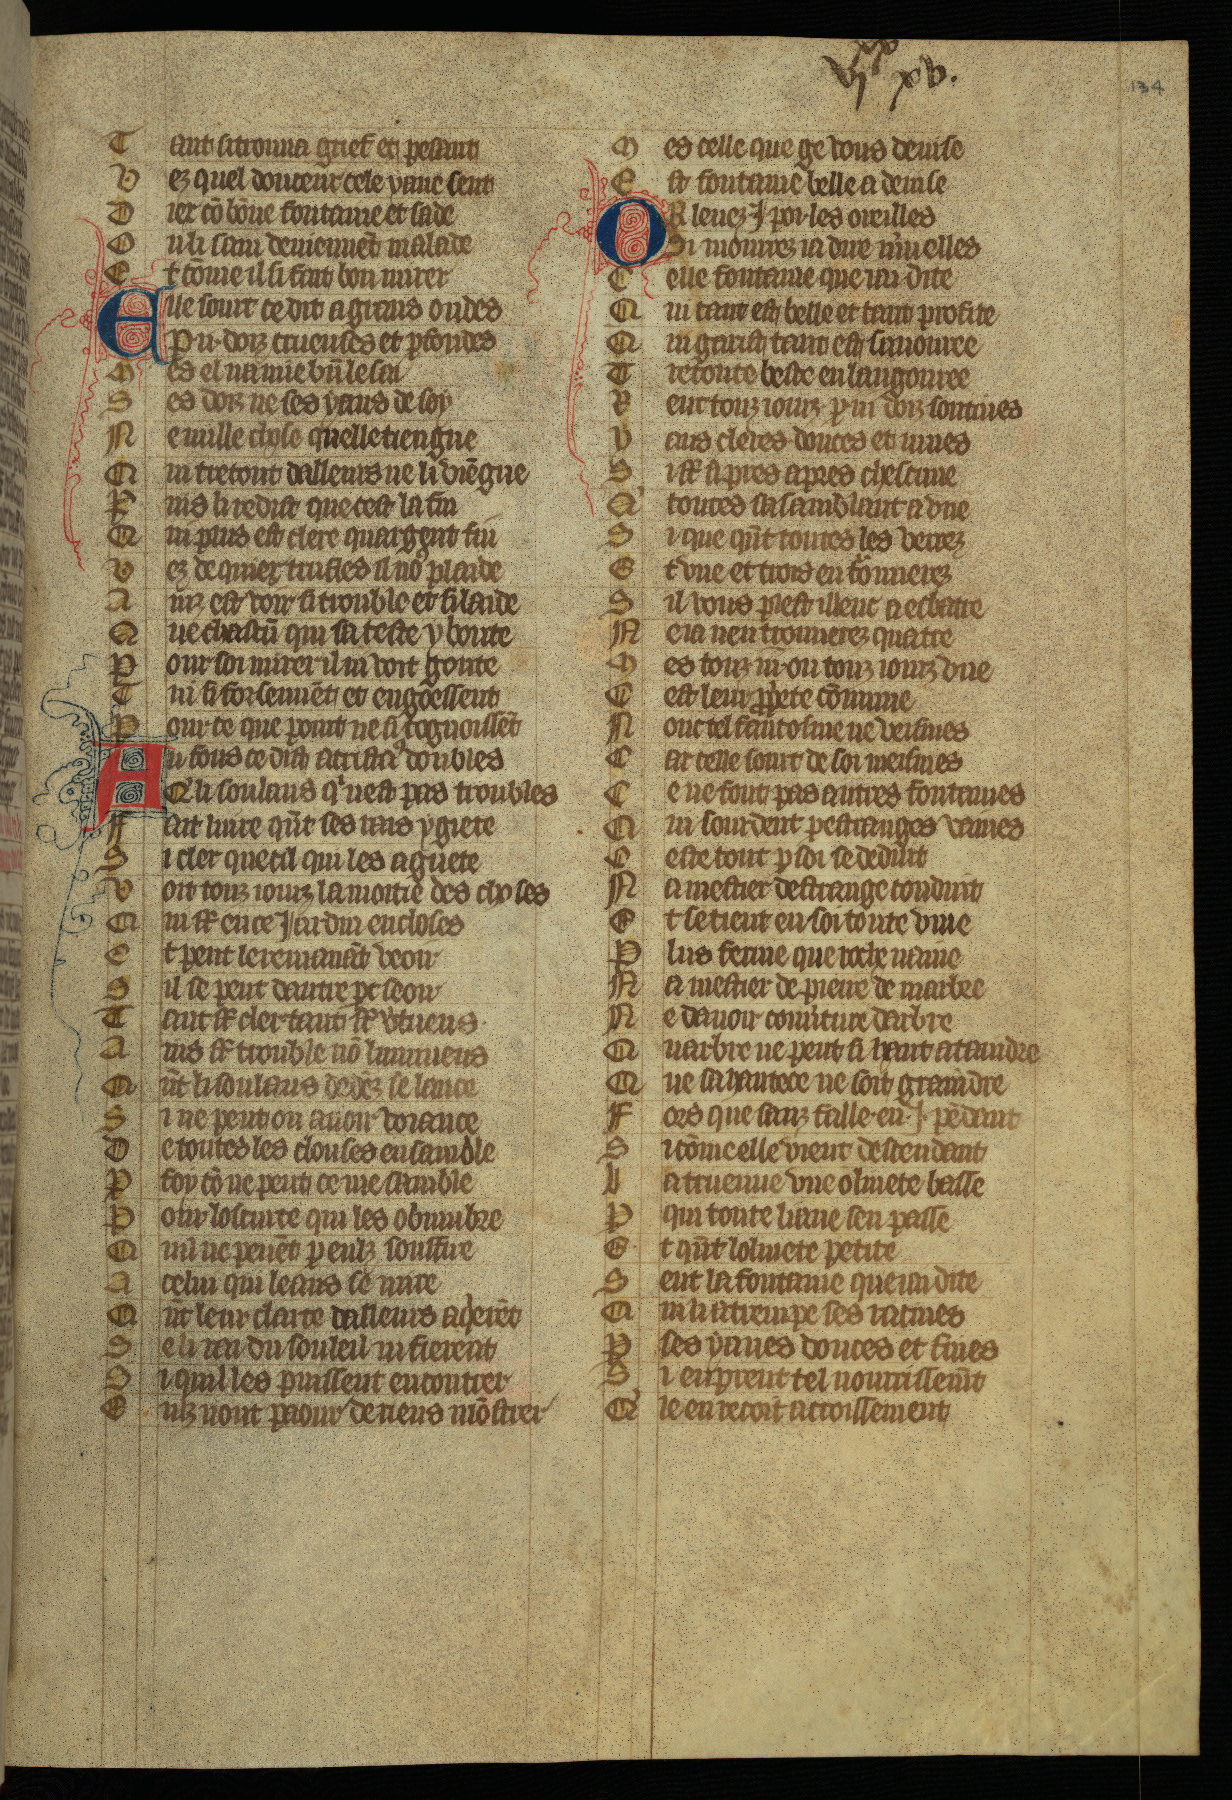 vi xx xv.
134
Tant sitrouua grief et pesant
Vez quel doucent cele yaue sent
Diex cō bōne fontaine et sade
Ou li sain deuiennēt malade
Et cōme il si fait bon mirer
Elle sourt ce dit a grans ondes
P .ii. doiz crueuses et pfondes
Mes el na mie bn̄ le sai
Ses doiz ne ses yaus de soy
Ne nulle chose quelle tiengne
Qui tretout dalleurs ne li viēgne
Puis li redist que cest la fin
Qui plus est clere quargent fin
Vez de quiex trufles il nō plaide
Ainz est voir si trouble et si laide
Que chascū qui sa teste y boute
Pour soi mirer il ni voit goute
Tuit si forsenuēt et engoēssent
Pour ce que point ne si cognoissēt
Au fons ce dist a cristaˣ doubles
Q̄ li soulaus qⁱ nest pas troubles
Fait luire qn̄t ses rais y giete
Si cler que cil qui les aguete
Voit touz iourz la moitie des choses
Qui sr̄ en ce Jardin encloses
Et peut le remanāt veoir
Sil se veut dautre pt seoir
Tant sr̄ cler tant sr̄ v̄tueus
Mais sr̄ trouble nō lumineus
Qn̄t li soulaus dedez se lance
Si ne peut on auoir voiance
De toutes les choses ensamble
P foy cō ne peut ce me samble
Pour loscurte qui les obnubre
Quil ne peuēt p eulz souffire
A celui qui leans se mire
Qn̄t leur clarte dalleurs aq̄erēt
Se li rai du souleil ni fierent
Si quil les puissent encontrer
Eulz nont paour de riens mōstrer
Mes celle que ge vous deuise
Est fontaine belle a deuise
OR leuez .J. poi les oreilles
Si morrez ia dire mˀuelles
Celle fontaine que iai dite
Qui tant est belle et tant profite
Qui garist tant est sauouree
Tretoute beste enlangouree
Rent touz iourz p .iii. doiz soutiues
Yaus cleres douces et uiues
Si sr̄ si pres apres chescune
Q̄ toutes sasamblant a une
Si que qn̄t toutes les verrez
Et vne et trois en t̄ouuerez
Sil vous plest illeuc a esbatre
Ne ia nen trouuerez quatre
Mes touz .iii. ou touz iourz vne
Cest leur pp̄ete cōmune
Nonc tel fantosme ne veismes
Car celle sourt de soi meismes
Ce ne font pas autres fontaines
Qui sourdent p estranges vaines
Ceste tout p soi se deduit
Na mestier destrange conduit
Et se tient en soi toute viue
Plus ferme que roche naiue
Na mestier de pierre de marbre
Ne dauoir couuerture darbre
Quarbre ne peut si haut ataindre
Que sa hautece ne soit graindre
Fors que sanz faille en .J. pēdant
Si cōme elle vient descendant
La treuue vne oliuete basse
P qui toute liaue sen passe
Et qn̄t loliuete petite
Sent la fontaine que iai dite
Qui li atrempe ses racines
P ses yaues douces et fines
Si en prent tel nourrissemēt
Q̄le en recoit acroissement